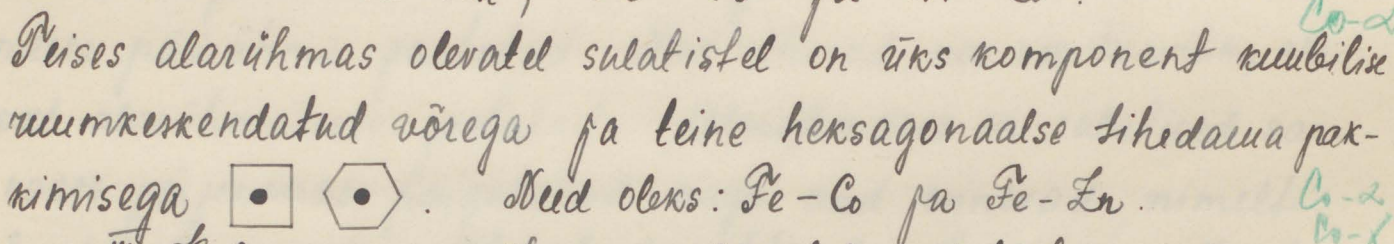 Co-α
Teises alarühmas olevatel sulatistel on üks komponent kuubilise
ruumkeskendatud võrega ja teine heksagonaalse tihedama pak-
kimisega . Need oleks: Fe-Co ja Fe-Zn. Co-α